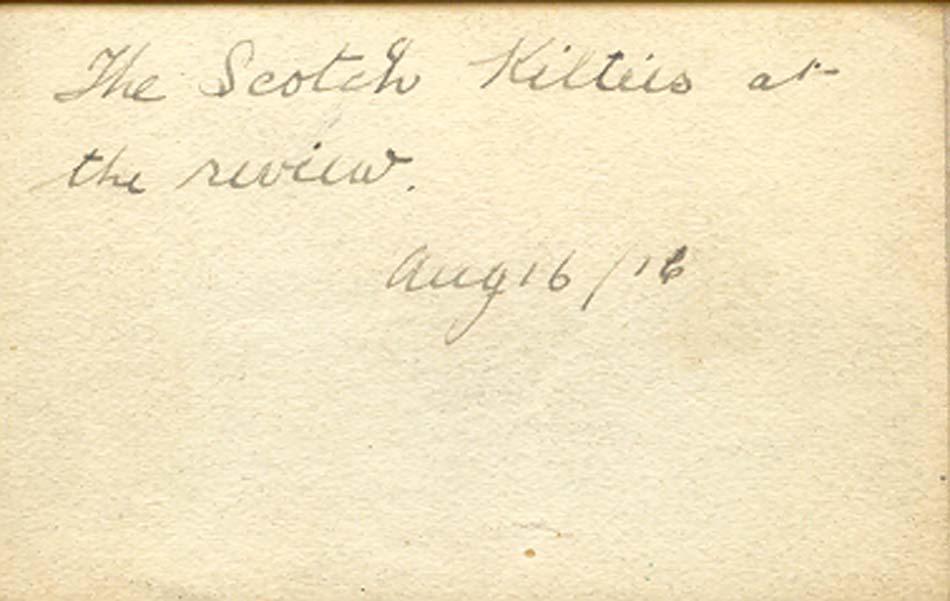 The Scotch Kilties at
the review.
Aug 16/16